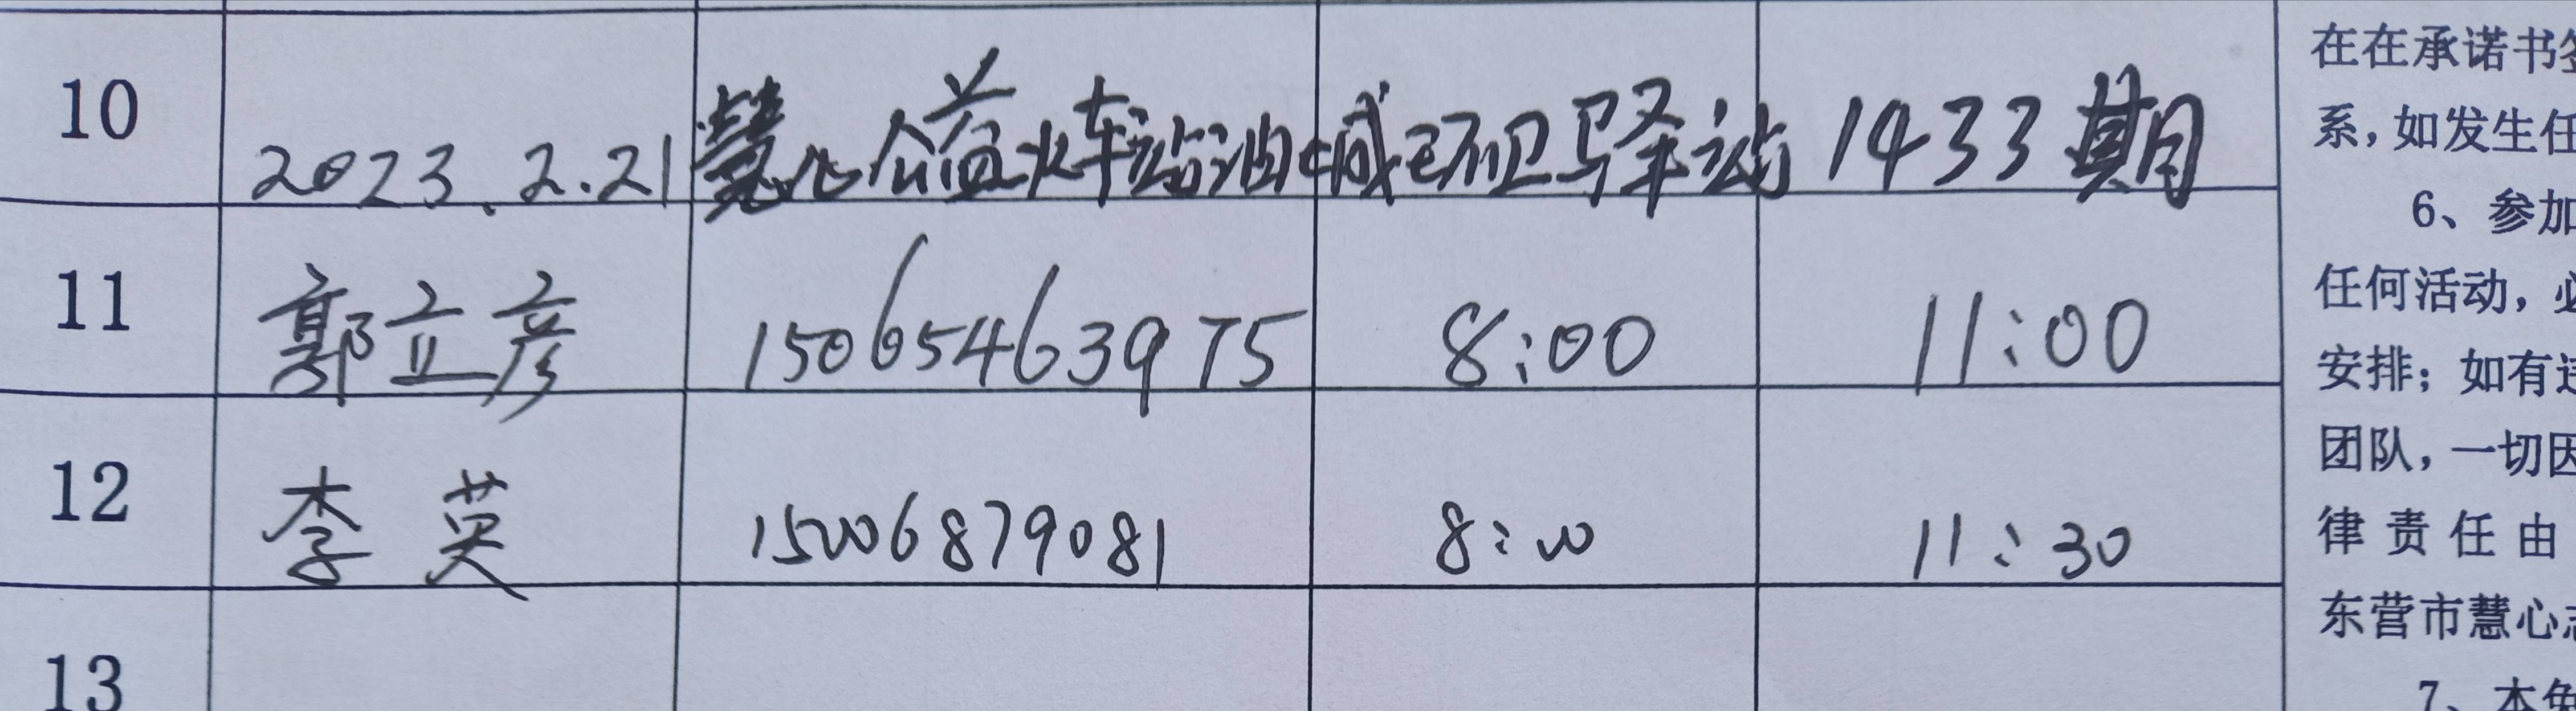 10 2023.2.21 慧心公益火车站油城环卫驿站 1433期
11 郭立彦 15065463975 8:00 11:00
12 李英 15006879081 8:00 11:30
13
在在承诺书签
系，如发生任
6、参加
任何活动，必
安排；如有违
团队，一切因
律责任由
东营市慧心志
7、本免